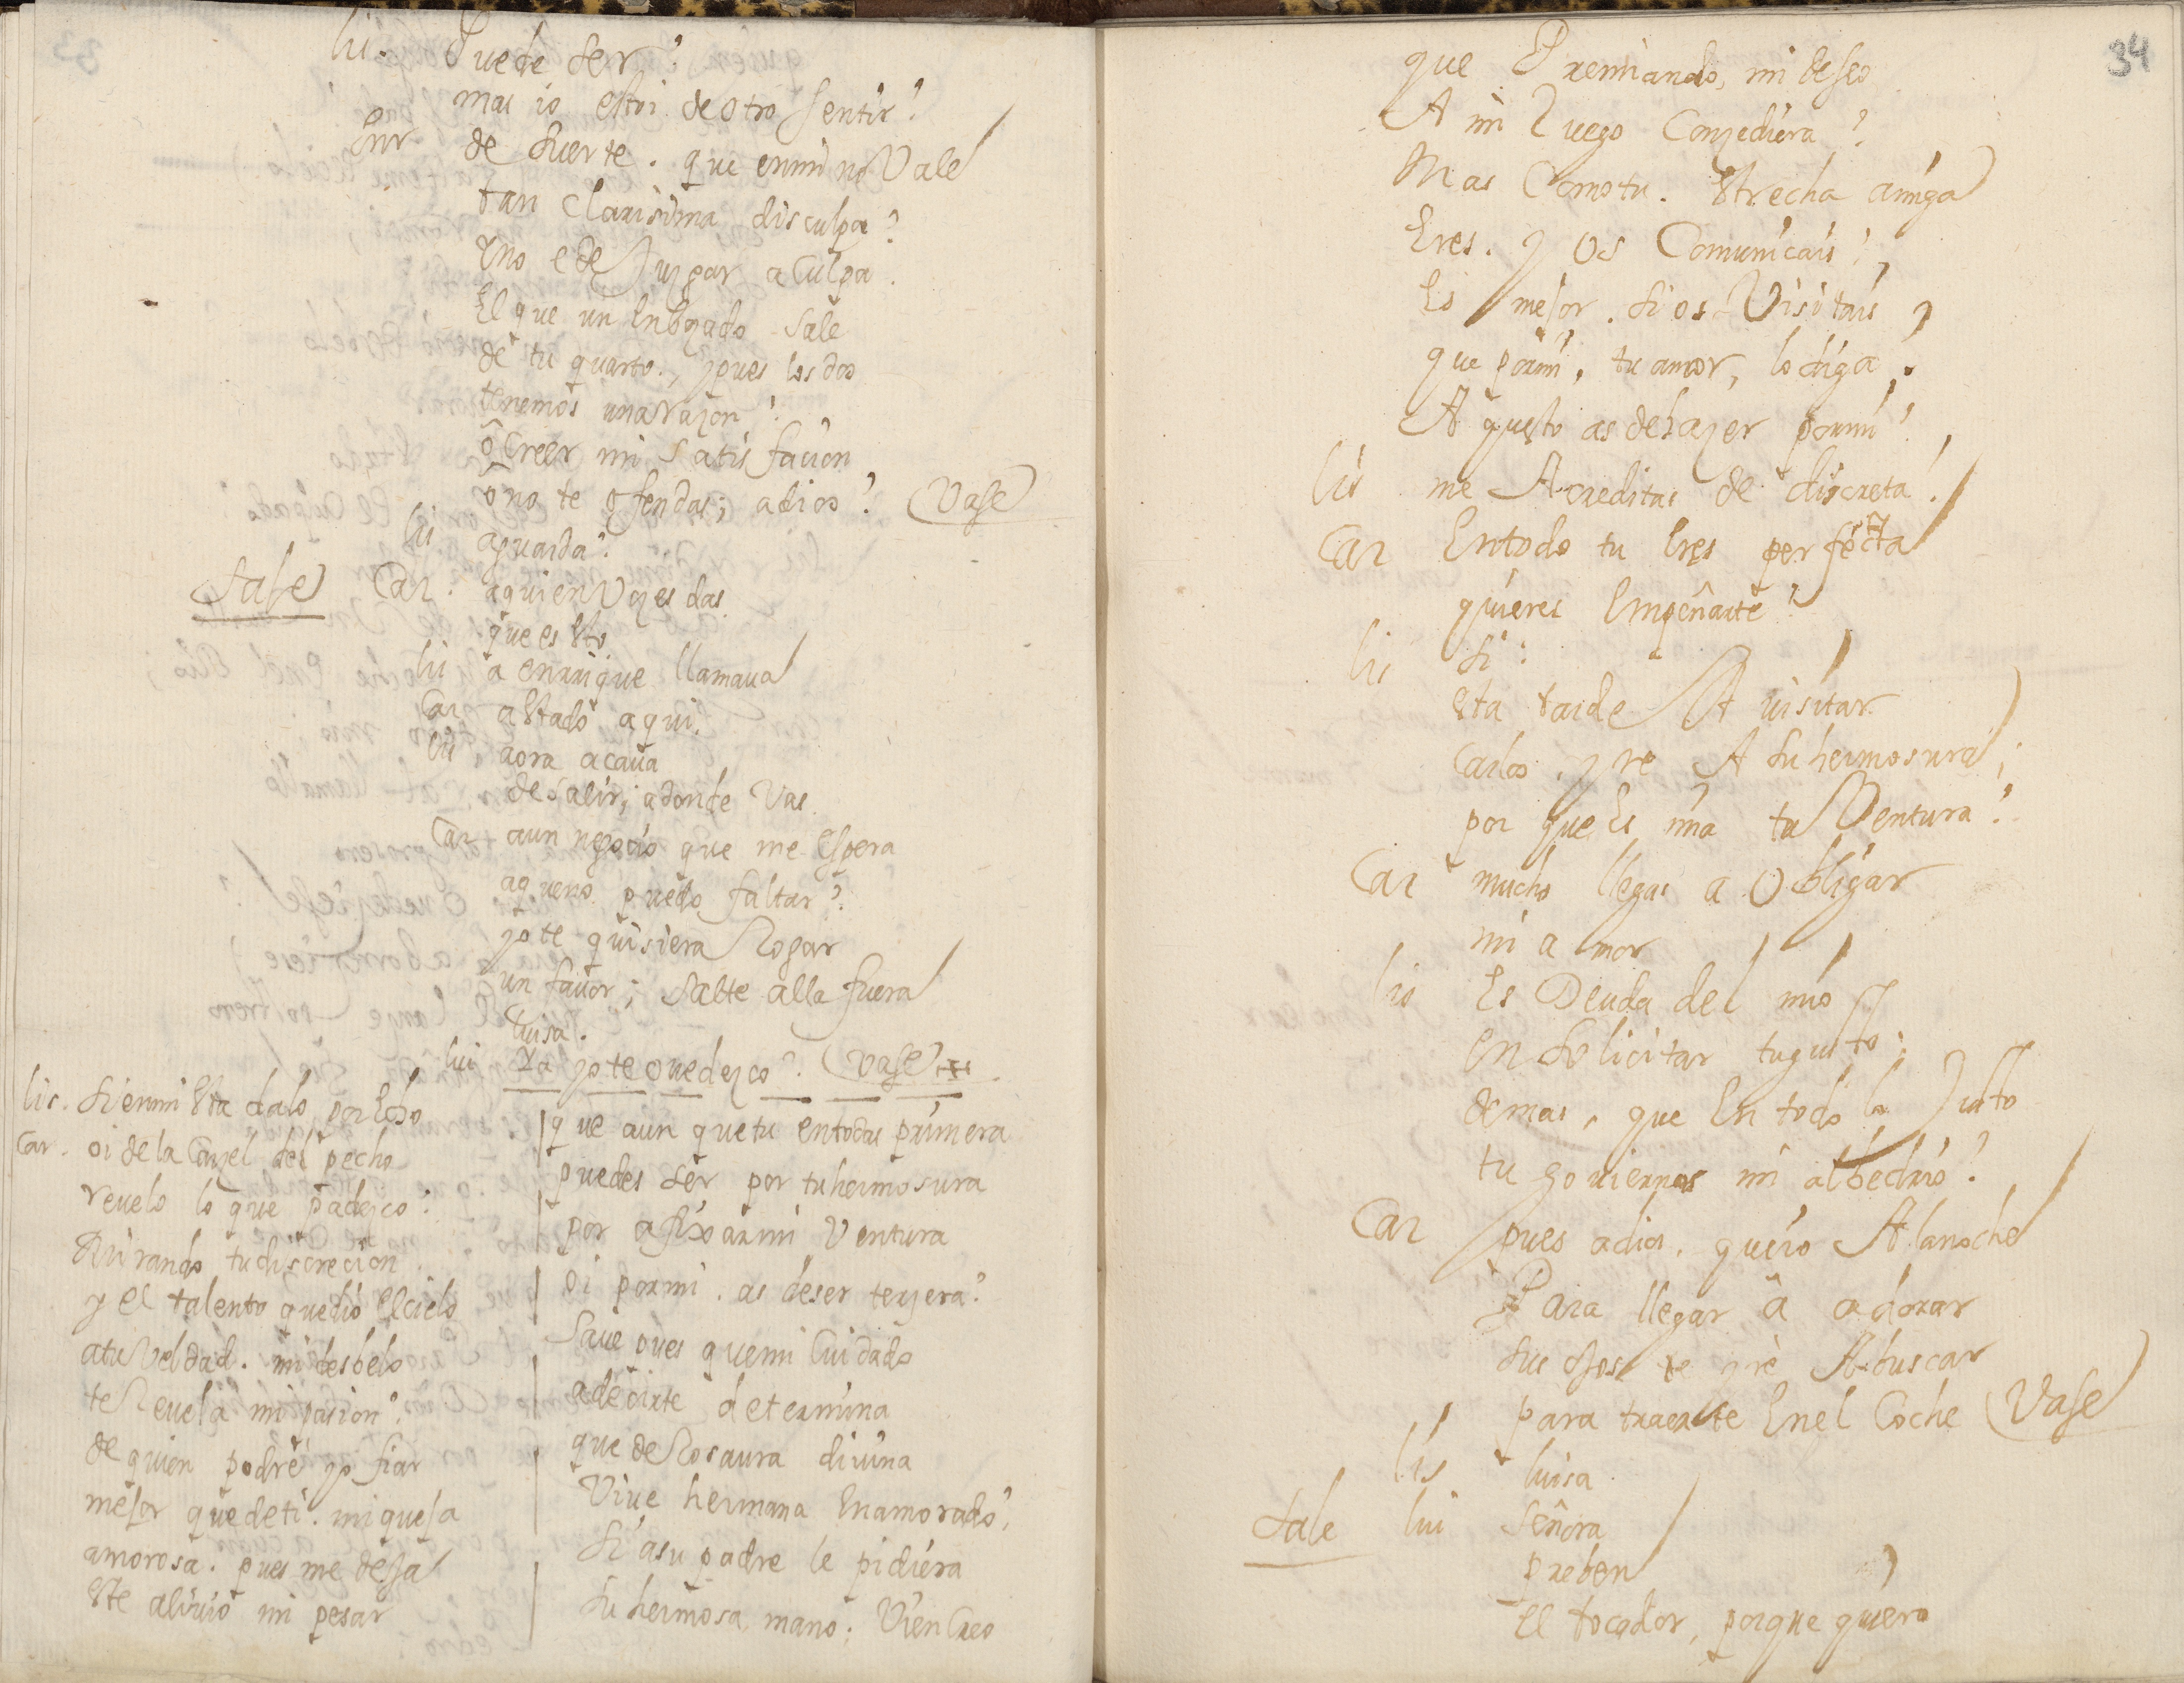 lis. Puede ser?
mas io estoi de otro sentir?
Enr de suerte. que enmi no Vale
tan Clarisima disculpa?
yno e de Juzgar a Culpa.
El que un Enbozado sale
de tu quarto., y pues los dos
tenemos una razon?
ô Creer mi Satisfacion
ô no te ofendas; adios? Vase
lis aguarda?
Sale Car. aquien Vozes das
que es Esto
lis a enrrique llamaua
Car a Estado aqui.
lis aora acaua
de salir; adonde Vas.
Car aun negocio que me espera
aqueno puedo faltar?
yo te quisiera Rogar
un fauor; Salte alla fuera
luisa.
lui Ya yo te ouedezco? Vase
lis. Si enmi Esta dalo por Echo
Car. oi de la Carzel del pecho
reuelo lo que padezco:
Mirando tu discrecion
y el talento quedio el cielo
atu Veldad. mi desbelo
te Reuela mi pasion?
de quien podre yo fiar
mejor que de ti. mi queja
amorosa. pues me deja
Este aliuio mi pesar
que aun que tu entodas primera
puedes ser por tu hermosura
por afixar mi Ventura
Oi por mi. as de ser terzera?
Saue pues que mi Cuidado
a decirte determina
que de Rosaura diuina
Viue hermana Enamorado?
Si asu padre le pidiera
Su hermosa mano. Vien Creo
34
que Premiando, mi deseo
A mi Ruego Conzediera?
Mas Como tu. Estrecha amiga
Eres. y os Comunicais?
Es mejor. si os Visitais
que por mi, tu amor, lo diga?
Aquesto as de hazer por mi?
lis me Acreditas de discreta?
Car Entodo tu Eres perfecta
quieres Empeñarte?
lis Si:
Esta tarde A uisitar
Carlos. yre A su hermosura;
por que Es mia tu Ventura?
Car mucho llegas a Obligar
mi amor
lis Es Deuda del mio
en solicitar tu gusto:
demas, que En todo lo Justo
tu gouiernas mi albedrio?
Car pues adios. quiero A la noche
Para llegar â adorar
sus ojos te yrè A buscar
para traerte En el Coche Vase
lis luisa.
Sale lui Señora
preben
El tocador, porque quiero